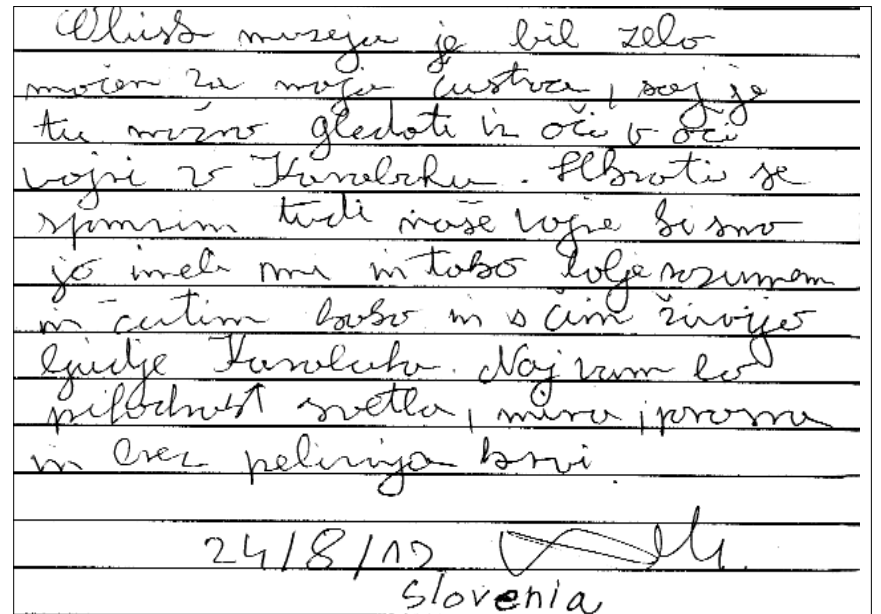 Obisk muzeja je bil zelo
močen za moja čustva, saj je
tu možno gledati iz oči v oči
vojni v Karabahu. Hkrati se
spomnim tudi naše vojne ki smo
jo imeli mi in tako bolje razumem
in čutim kako in s čim živijo
ljudje Karabaha. Naj vam bo
prihodnost svetla, mirna, pravična
in brez prelivanja krvi.
24/8/12
Slovenia